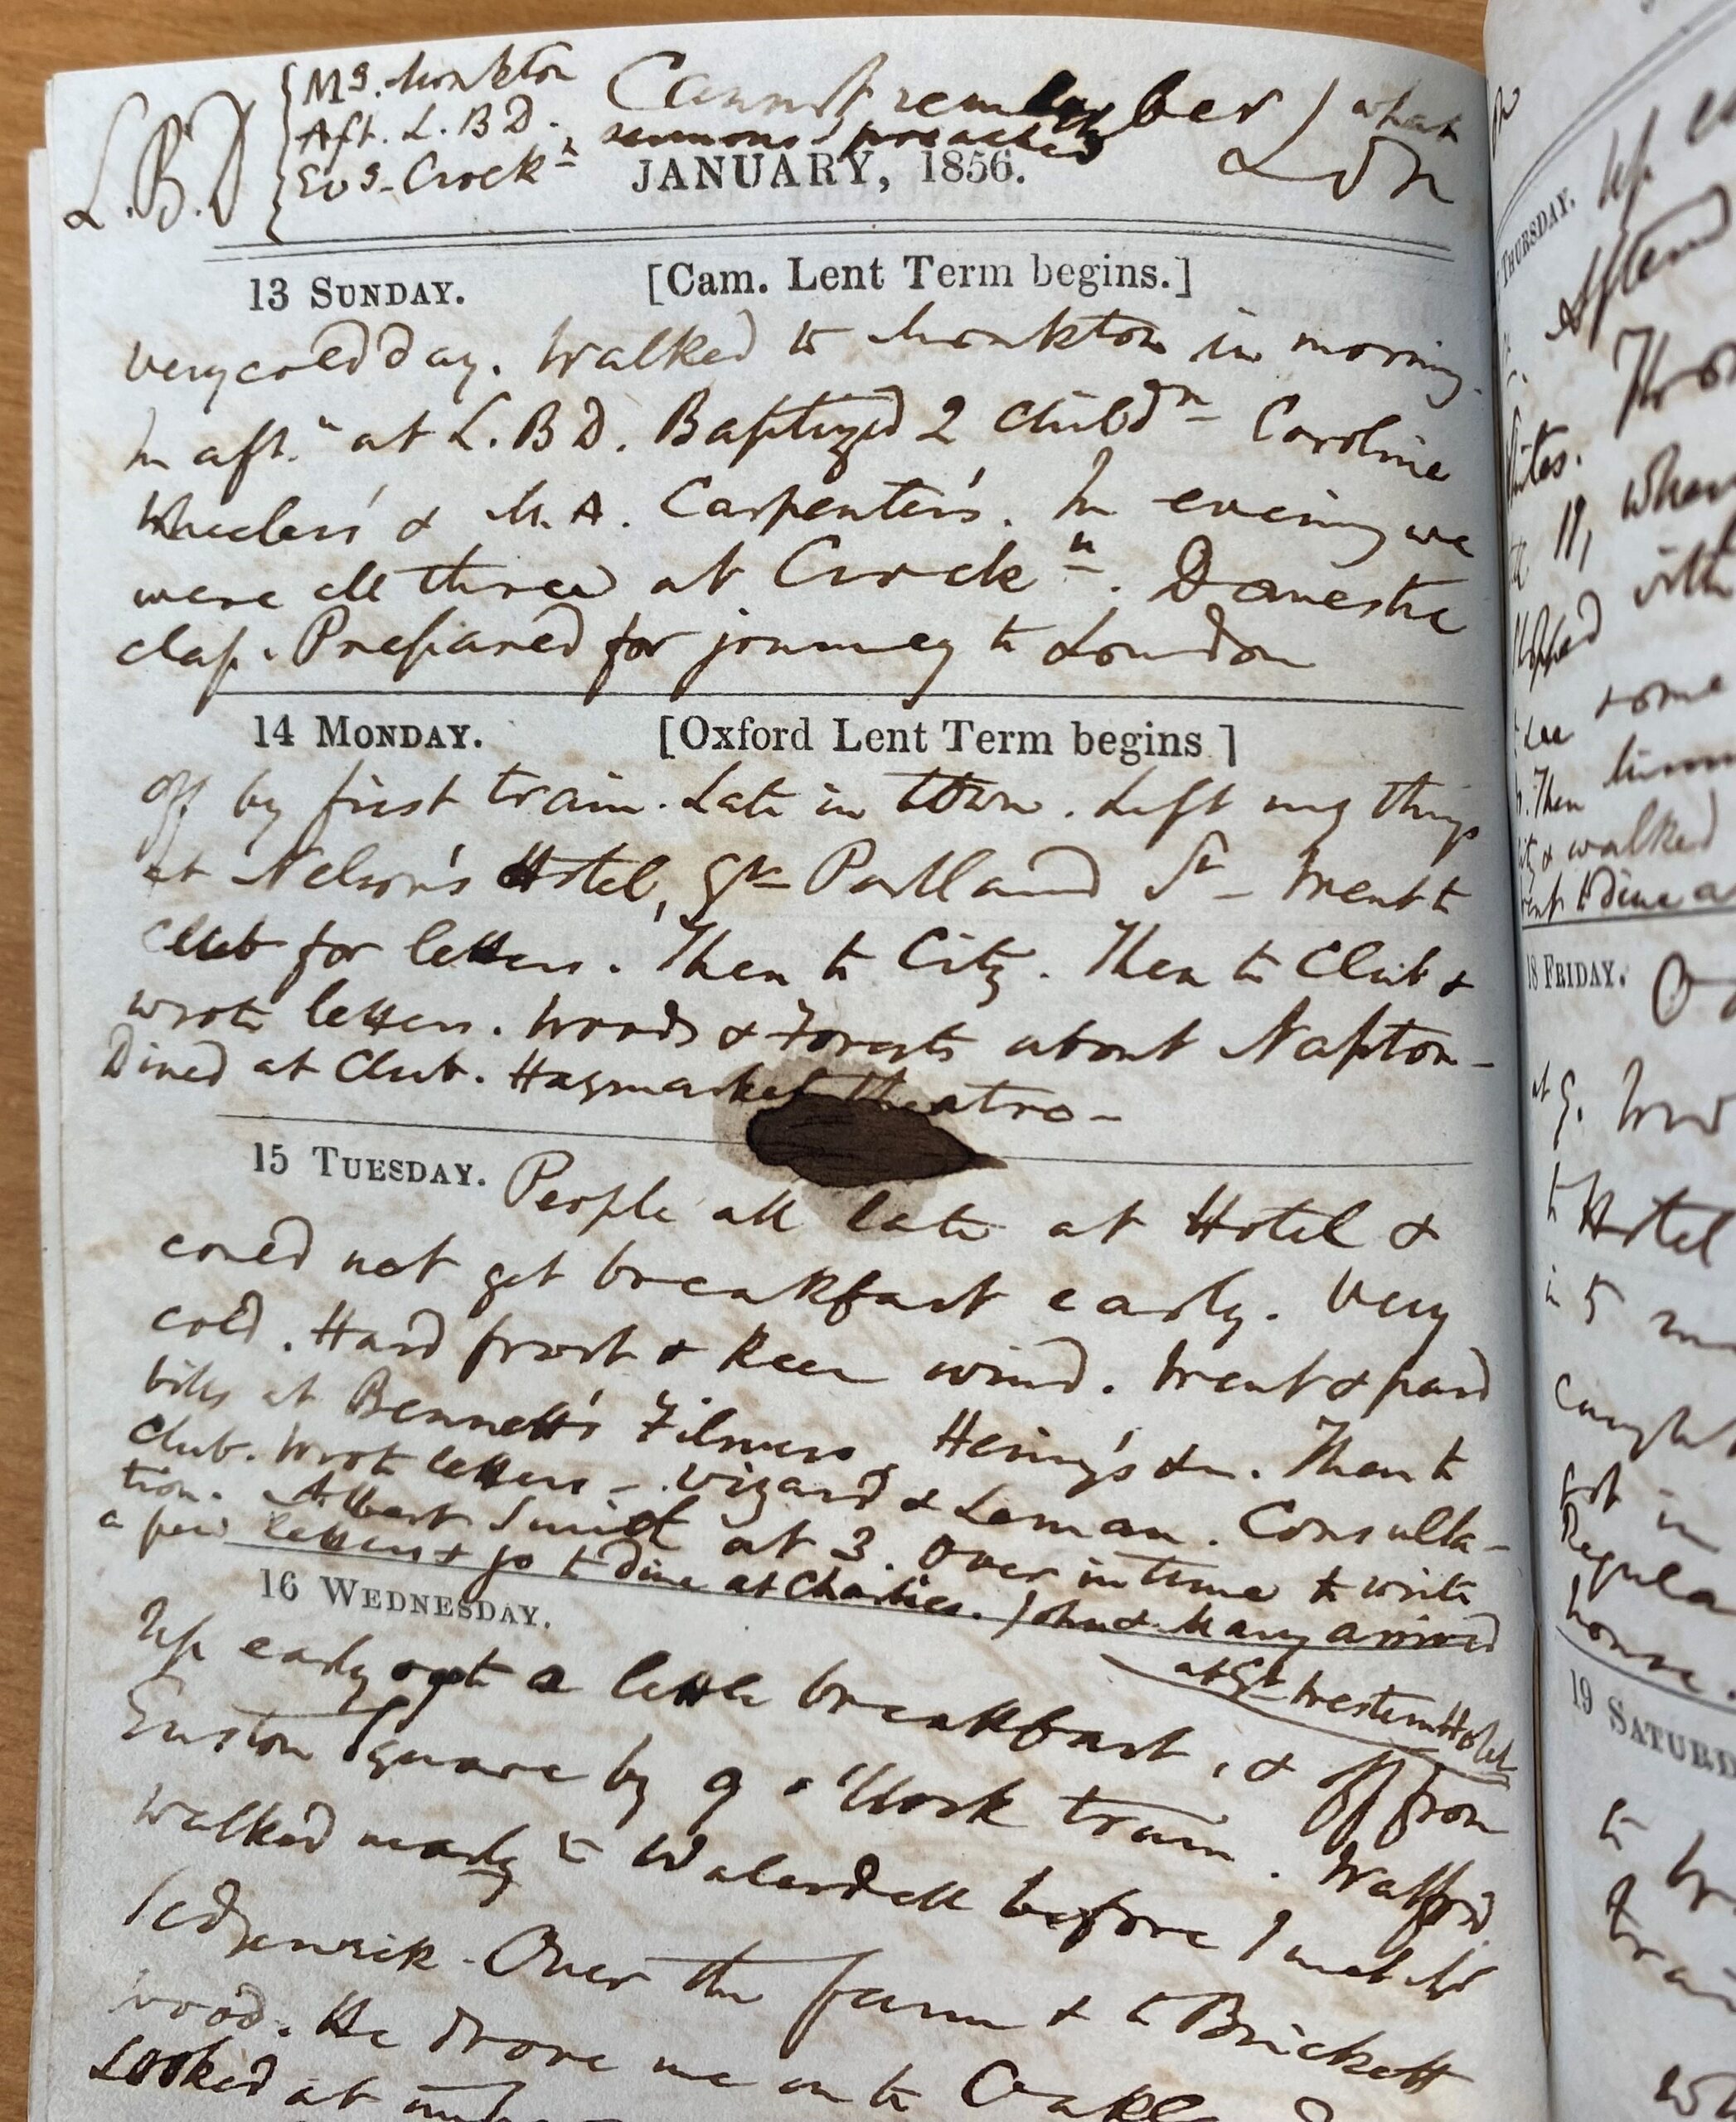 L.B.D
Mg. Monkton
Aft. L. B D.
Evg. Crockn
Cannot remember what
sermons I preached
Ldn
JANUARY, 1856.
13 SUNDAY. [Cam. Lent Term begins.]
very cold day. Walked to Monkton in morning.
In aftn at L. B D. Baptized 2 childn Caroline
Wheelers' & M. A. Carpenter's. In evening we
were all three at Crockn. Domestic
clap. Prepared for journey to London
14 MONDAY. [Oxford Lent Term begins ]
off by first train. Late in town. Left my things
at Nelson's Hotel, Gt Portland St - Went to
Club for letters. Then to City. Then to Club &
wrote letters. Woods & Forests about Napton -
Dined at Club. Haymarket Theatre -
15 TUESDAY. People all late at Hotel &
could not get breakfast early. Very
cold. Hard frost & keen wind. Went & paid
bills at Bennett's Filmers, Hering's &c. Then to
Club. Wrote letters - Vizard & Leman. Consulta-
tion. Albert Smith at 3. Over in time to write
a few letters & go to dine at Charlies. John & Mary arrived
at Gt Western Hotel
16 WEDNESDAY.
Up early got a little breakfast, & off from
Euston Square by 9 o'Clock train. Watford
walked nearly to before I met Mr
Sedgwick. Over the farm & to Brickett
wood. He drove me on to
Looked at
THURSDAY.
Up
11, when
with
some
Then
& walked
to dine a
18 FRIDAY.
at 9.
to Hotel
in 5
Caught
got in
Regula
home.
19 SATURD
to